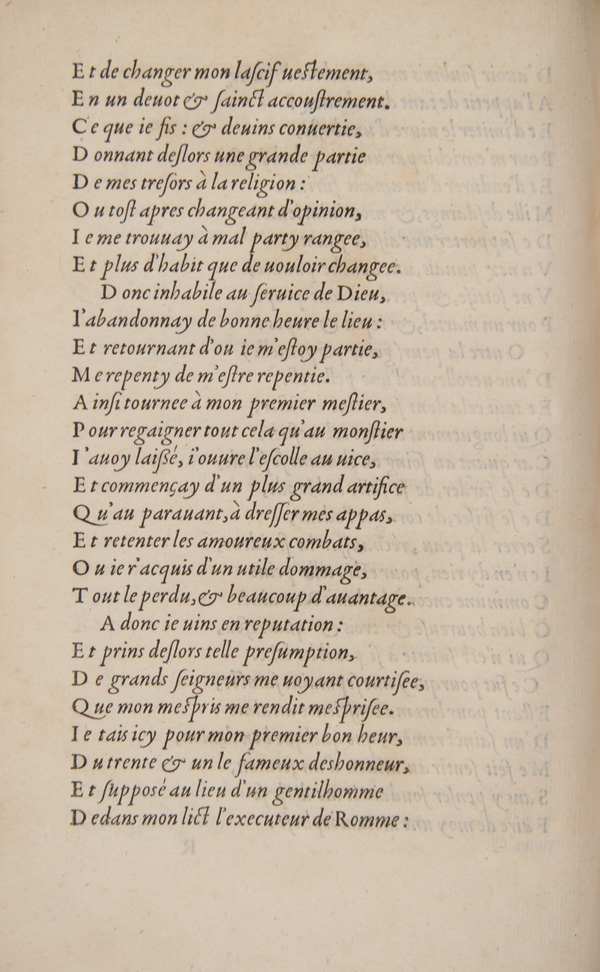 Et de changer mon laſcif ueſtement,
En un deuot & ſainct accouſtrement.
Ce que ie fis : & deuins conuertie,
Donnant deſlors une grande partie
De mes treſors à la religion :
Ou toſt apres changeant d'opinion,
Ie me trouuay à mal party rangee,
Et plus d'habit que de uouloir changee.
Donc inhabile au ſeruice de Dieu,
I'abandonnay de bonne heure le lieu :
Et retournant d'ou ie m'eſtoy partie,
Me repenty de m'eſtre repentie.
Ainſi tournee à mon premier meſtier,
Pour regaigner tout cela qu'au monſtier
I'auoy laiſsé, i'ouure l'eſcolle au uice,
Et commençay d'un plus grand artifice
Qu'au parauant, à dreſſer mes appas,
Et retenter les amoureux combats,
Ou ie r'acquis d'un utile dommage,
Tout le perdu, & beaucoup d'auantage.
Adonc ie uins en reputation :
Et prins deſlors telle preſumption,
De grands ſeigneurs me uoyant courtiſee,
Que mon meſpris me rendit meſpriſee.
Ie tais icy pour mon premier bon heur,
Du trente & un le fameux deshonneur,
Et ſuppoſé au lieu d'un gentilhomme
Dedans mon lict l'executeur de Romme :